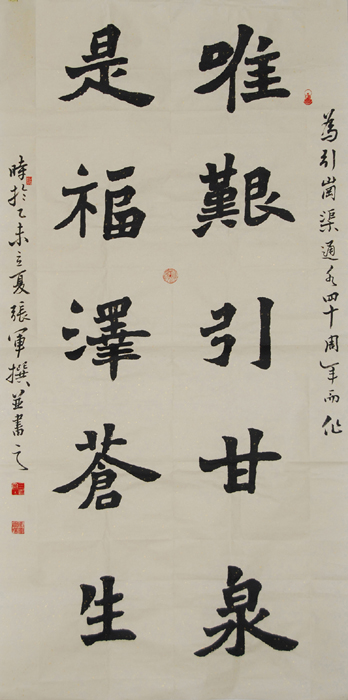 為引崗渠通水四十周年而作
唯艱引甘泉
是福澤蒼生
時於乙未立夏張軍撰並書之